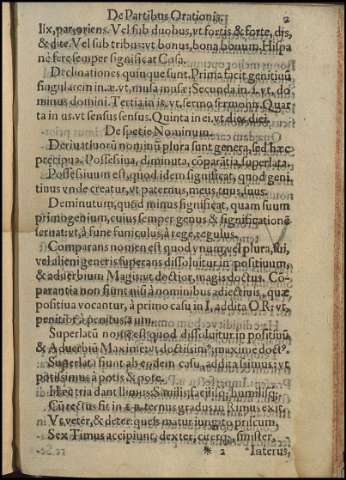 De Partibus Orationis. 2
lix, par, oriens. Vel sub duobus, vt fortis & forte, dis,
& dite. Vel sub tribus: vt bonus, bona bonum. Hispa
nè ferè semper significat Cosa.
Declinationes quinque sunt. Prima facit genitiuũ
singularem in æ. vt, musa musæ: Secunda in I. vt, do
minus domini. Tertia in is. vt, sermo sermonis. Quar
ta in us. vt sensus sensus. Quinta in ei. vt dies diei.
De specie Nominum.
Deriuatiuorũ nominũ plura sunt genera, sed hæc
præcipua. Possessiua, diminuta, cõparãtia, superlata.
Possessiuum est, quod idem significat, quod geni
tiuus vnde creatur, vt paternus, meus, tuus, suus.
Deminutum, quod minus significat, quam suum
primogenium, cuius semper genus & significationẽ
seruat: vt, à fune funiculus, à rege, regulus.
Comparans nomen est quod vnum, vel plura, sui,
vel alieni generis superans dissoluitur in positiuum,
& aduerbium Magis: vt doctior, magis doctus. Co-
parantia non fiunt nisi à nominibus adiectiuis, quæ
positiua vocantur, à primo casu in I. addita OR: vt,
Superlatũ nomẽ est quod dissoluitur in positiuũ,
& Aduerbiũ Maximè: vt, doctissimꝰ, maximè doctꝰ.
Superlata fiunt ab eodem casu, addita ssimus: vt
potissimus à potis & pote.
Hæc tria dant llimus: Similis, facilis, humilis:
Cũ rectus fit in er. ternus gradus in Rimus exit.
Vt, veter, & deter: queis matur jungito priscum,
Sex Timus accipiunt, dexter, cum sinister,
* 2 Interus,